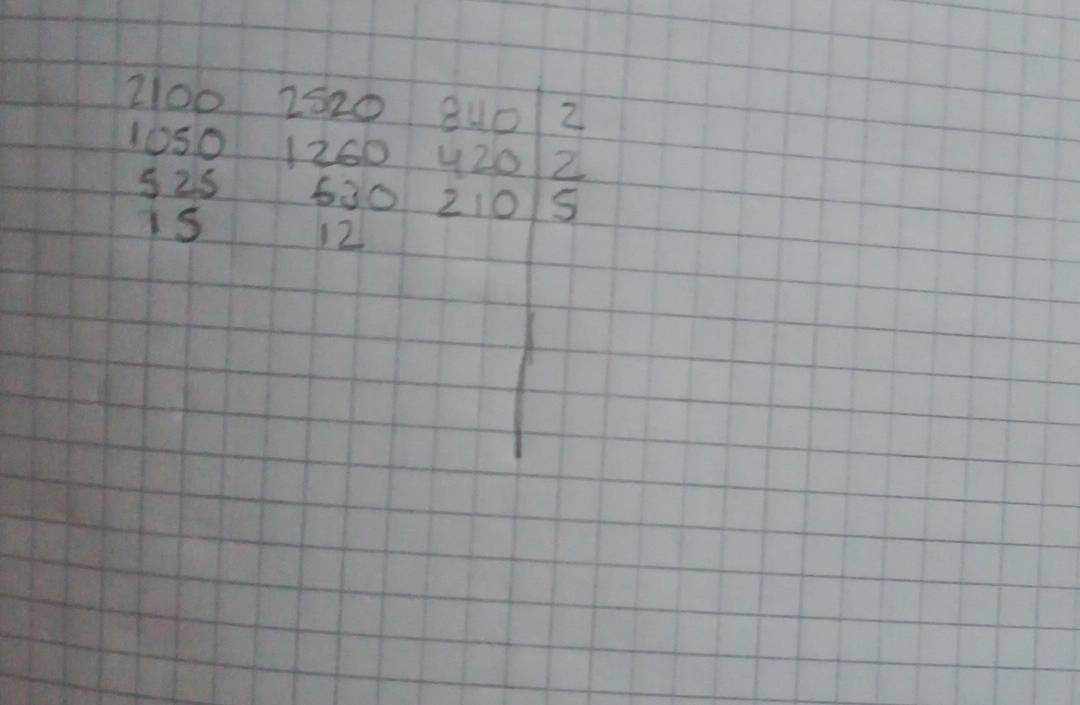 2100 2520 840 | 2
1050 1260 420 | 2
525 630 210 | 5
15 12